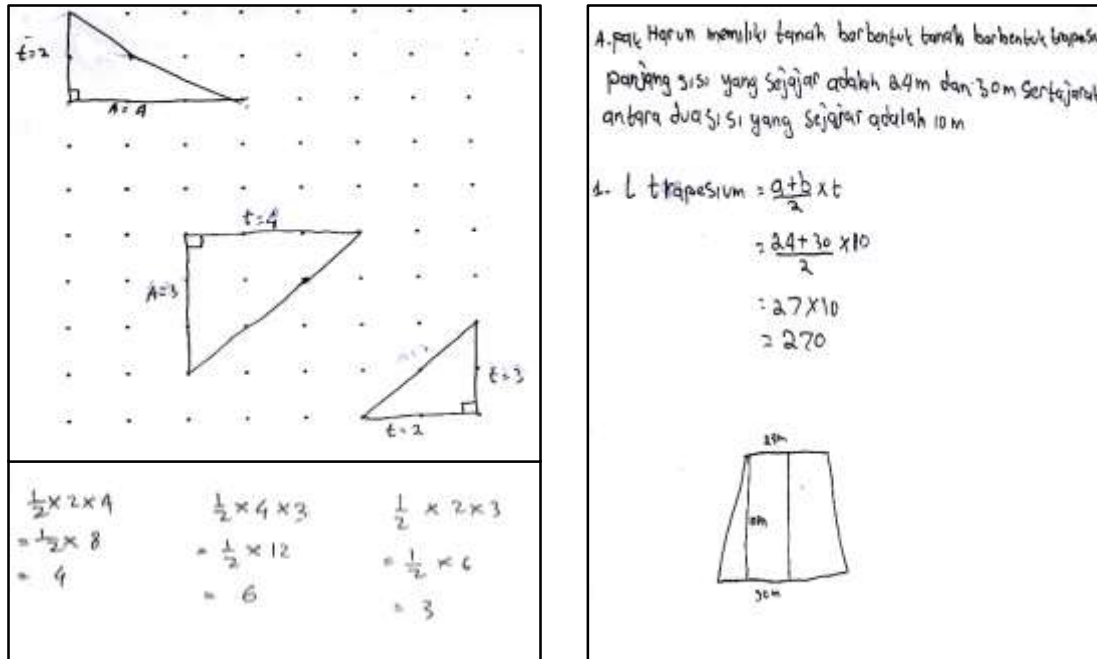 t=2
A=4
t=4
A=3
t=3
t=2
1/2 × 2 × 4
= 1/2 × 8
= 4
1/2 × 4 × 3
= 1/2 × 12
= 6
1/2 × 2 × 3
= 1/2 × 6
= 3
A. pak Harun memiliki tanah berbentuk tanah berbentuk
panjang sisi yang sejajar adalah 24m dan 30m serta jarak
antara dua sisi yang sejajar adalah 10m
1. L trapesium = a+b/2 × t
= 24+30/2 × 10
= 27×10
= 270
24m
30m